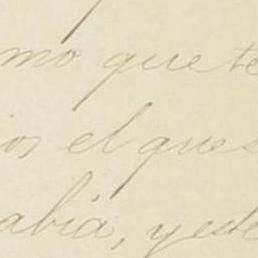 mo que te
ios el ques
abia, y este